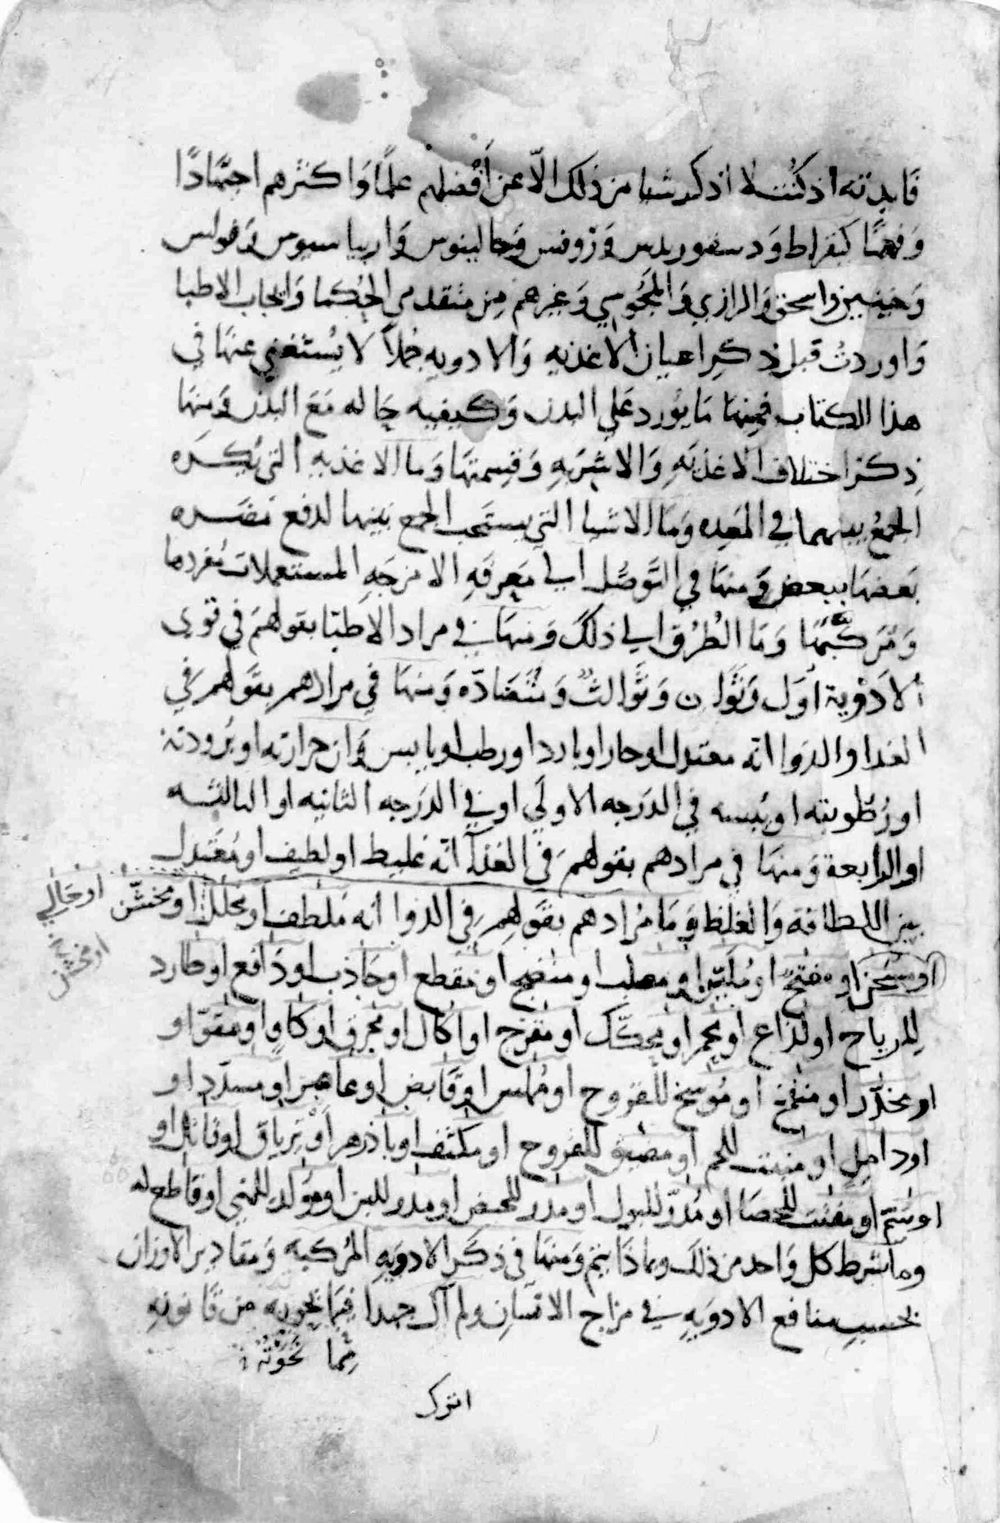 فايدته اذ كنت لا اذكر شيا من ذلك الّا عن أفضلهم علمًا وَاكثرهم اجتهادًا
وَفهمًا كبقراط وَدسقوريدس وَروفس وَجالينوس وَاريباسيوس وَفولس
وَحنين واسحق وَالرازي وَالمجُوسي وَغيرهم مِن متقدمي الحُكما وَانجاب الاطبا
وَاوردتُ قبل ذكر اعيان الاغذيه وَالادويه جُملاً لا يُستَغني عنهَا في
هذا الكتاب فمنهَا مَا يُورد عَلي البدن وَكيفيه حَاله مَعَ البدن وَمنهَا
ذِكر اختلاف الاغذيَهِ وَالاشربَهِ وَقسِمتهَا وَما الاغذيه التي يُكرَه
الجمعُ بينهما في المَعِده وَمَا الاشيا التي يستحَب الجمع بَينها لدفع مضَره
بَعضهَا ببعض وَمنهَا في التَّوصُّل الي مَعرفَهِ الامزجَهِ المستعملات مُفردها
وَمُركَّبَهَا وَمَا الطُرُق الي ذلكَ وَمنهَا في مراد الاَطبّا بقولهمَ في قوي
الادْوية أوَل وَثَوَان وَثَوالث وَمُتَضَادّه وَمنهَا في مرادهم بقَولهمَ في
الغدا والدوا انه معتدل او حار او بارد او رطب او يابس وَان حرارته او بُرودته
او رُطُوبته او يُبسه في الدَرجه الاولَي او في الدَرجه الثانيه او الثالثه
او الرابعة وَمنهَا في مرادهم بقولهمَ في الغذآ انّه غليظ او لطيف او مُعتدِل
بين اللطافة وَالغلظ وَمَا مُرادهم بقَولهم في الدوا انه مُلطف او محلل او مخشّن او جَالي
او مخشن
او مسخّن او مفتح او مُليّن او مصلب او منضج او مُقطع او جَاذب او دَافع او طارد
للرياح او لذاع او محمر او محكّك او مقرّح او اكال او محرق او كاوٍ او مقوّ او
او مخدّر او منفّخ او مُوسخ للقروح او مُملس او قَابض او عاصر او مسدّد او
او دامِل او منبت للحم او مضيق للقروح او مكثف او باذزهر او تِرياق او قاتل او
او سَمّ او مفتت للحَصَا او مُدرّ للبول او مدر للحيض او مدر للبن او مولّد للمني او قاطع له
وما شرط كل وَاحد من ذلكَ وبماذَا يتم وَمنهَا في ذكَر الادويَهِ المرُكبه وَمقادير الاوزان
بحَسب منافع الادويَهِ في مزاج الانسَان ولم آل جهدا فيمَا نحَوته من قانونهِ
مما نحَوْته
اترك